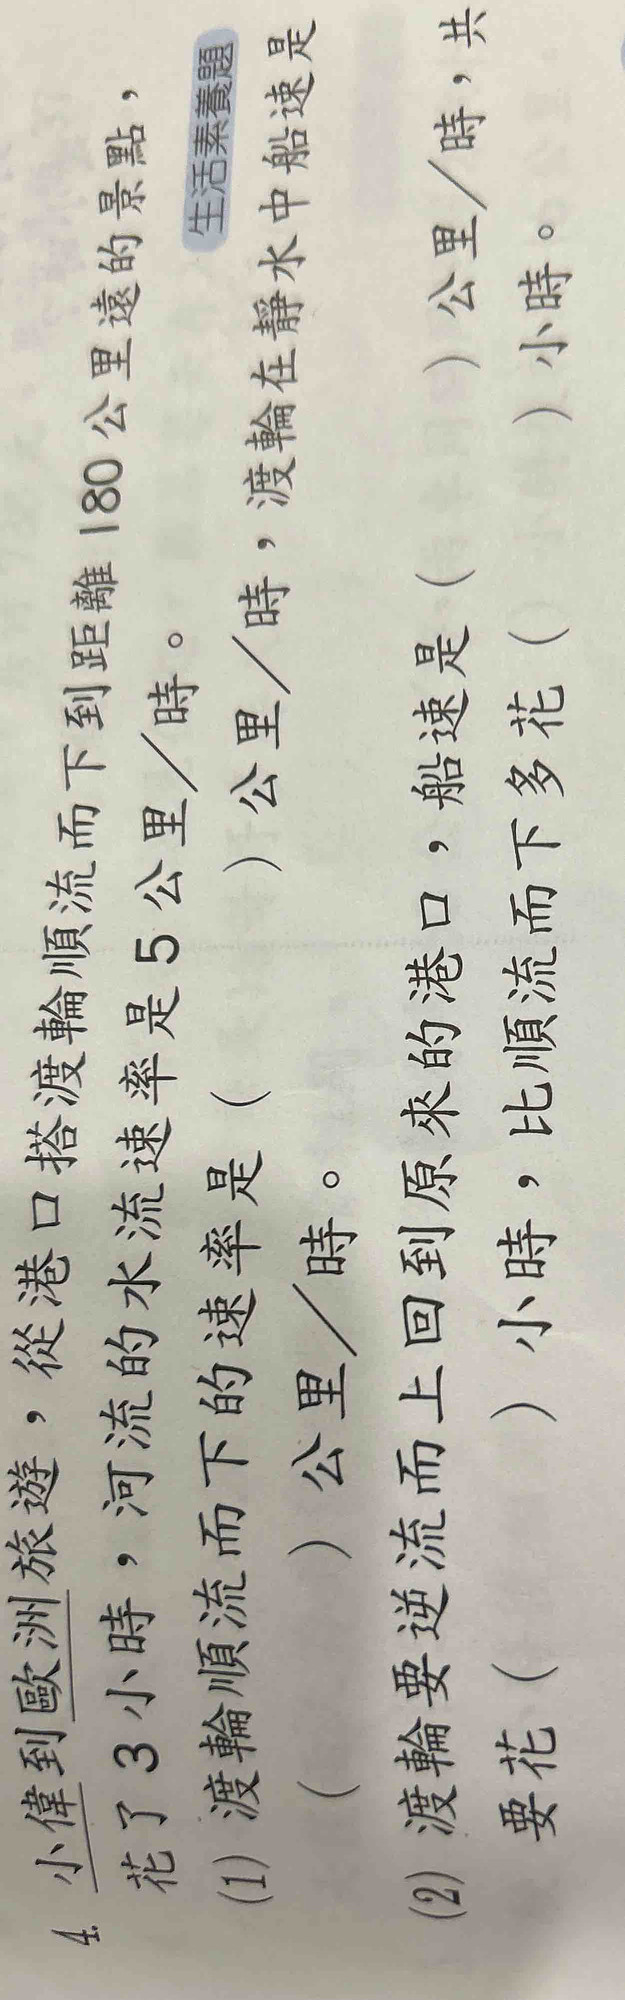 4. 小偉到歐洲旅遊，從港口搭渡輪順流而下到距離 180 公里遠的景點，
花了 3 小時，河流的水流速率是 5 公里／時。
生活素養題
(1) 渡輪順流而下的速率是（　　　）公里／時，渡輪在靜水中船速是
（　　　）公里／時。
(2) 渡輪要逆流而上回到原來的港口，船速是（　　　）公里／時，共
要花（　　　）小時，比順流而下多花（　　　）小時。